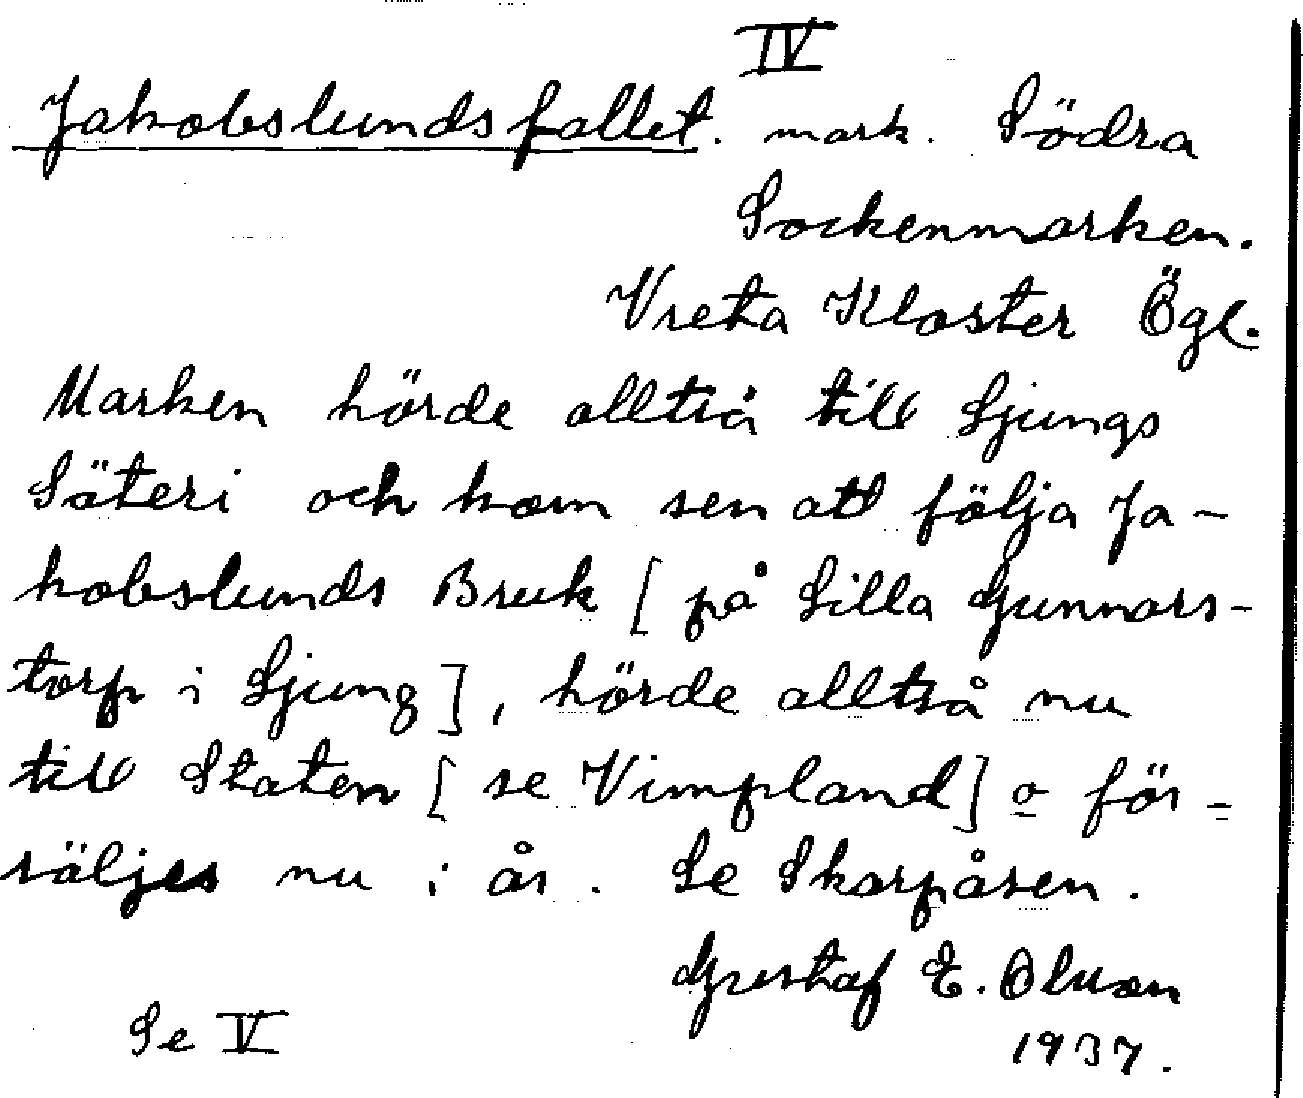 IV
Jakobslundsfallet. mark. Södra
Sockenmarken.
Vreta Kloster Ögl.
Marken hörde alltså till Ljungs
Säteri och kom sen att följa Ja-
kobslunds Bruk [på Lilla Gunnars-
torp i Ljung], hörde alltså nu
till Staten [se Vimpland] o för-
säljes nu i år. Se Skarpåsen.
Gustaf E. Olsson
1937.
Se V